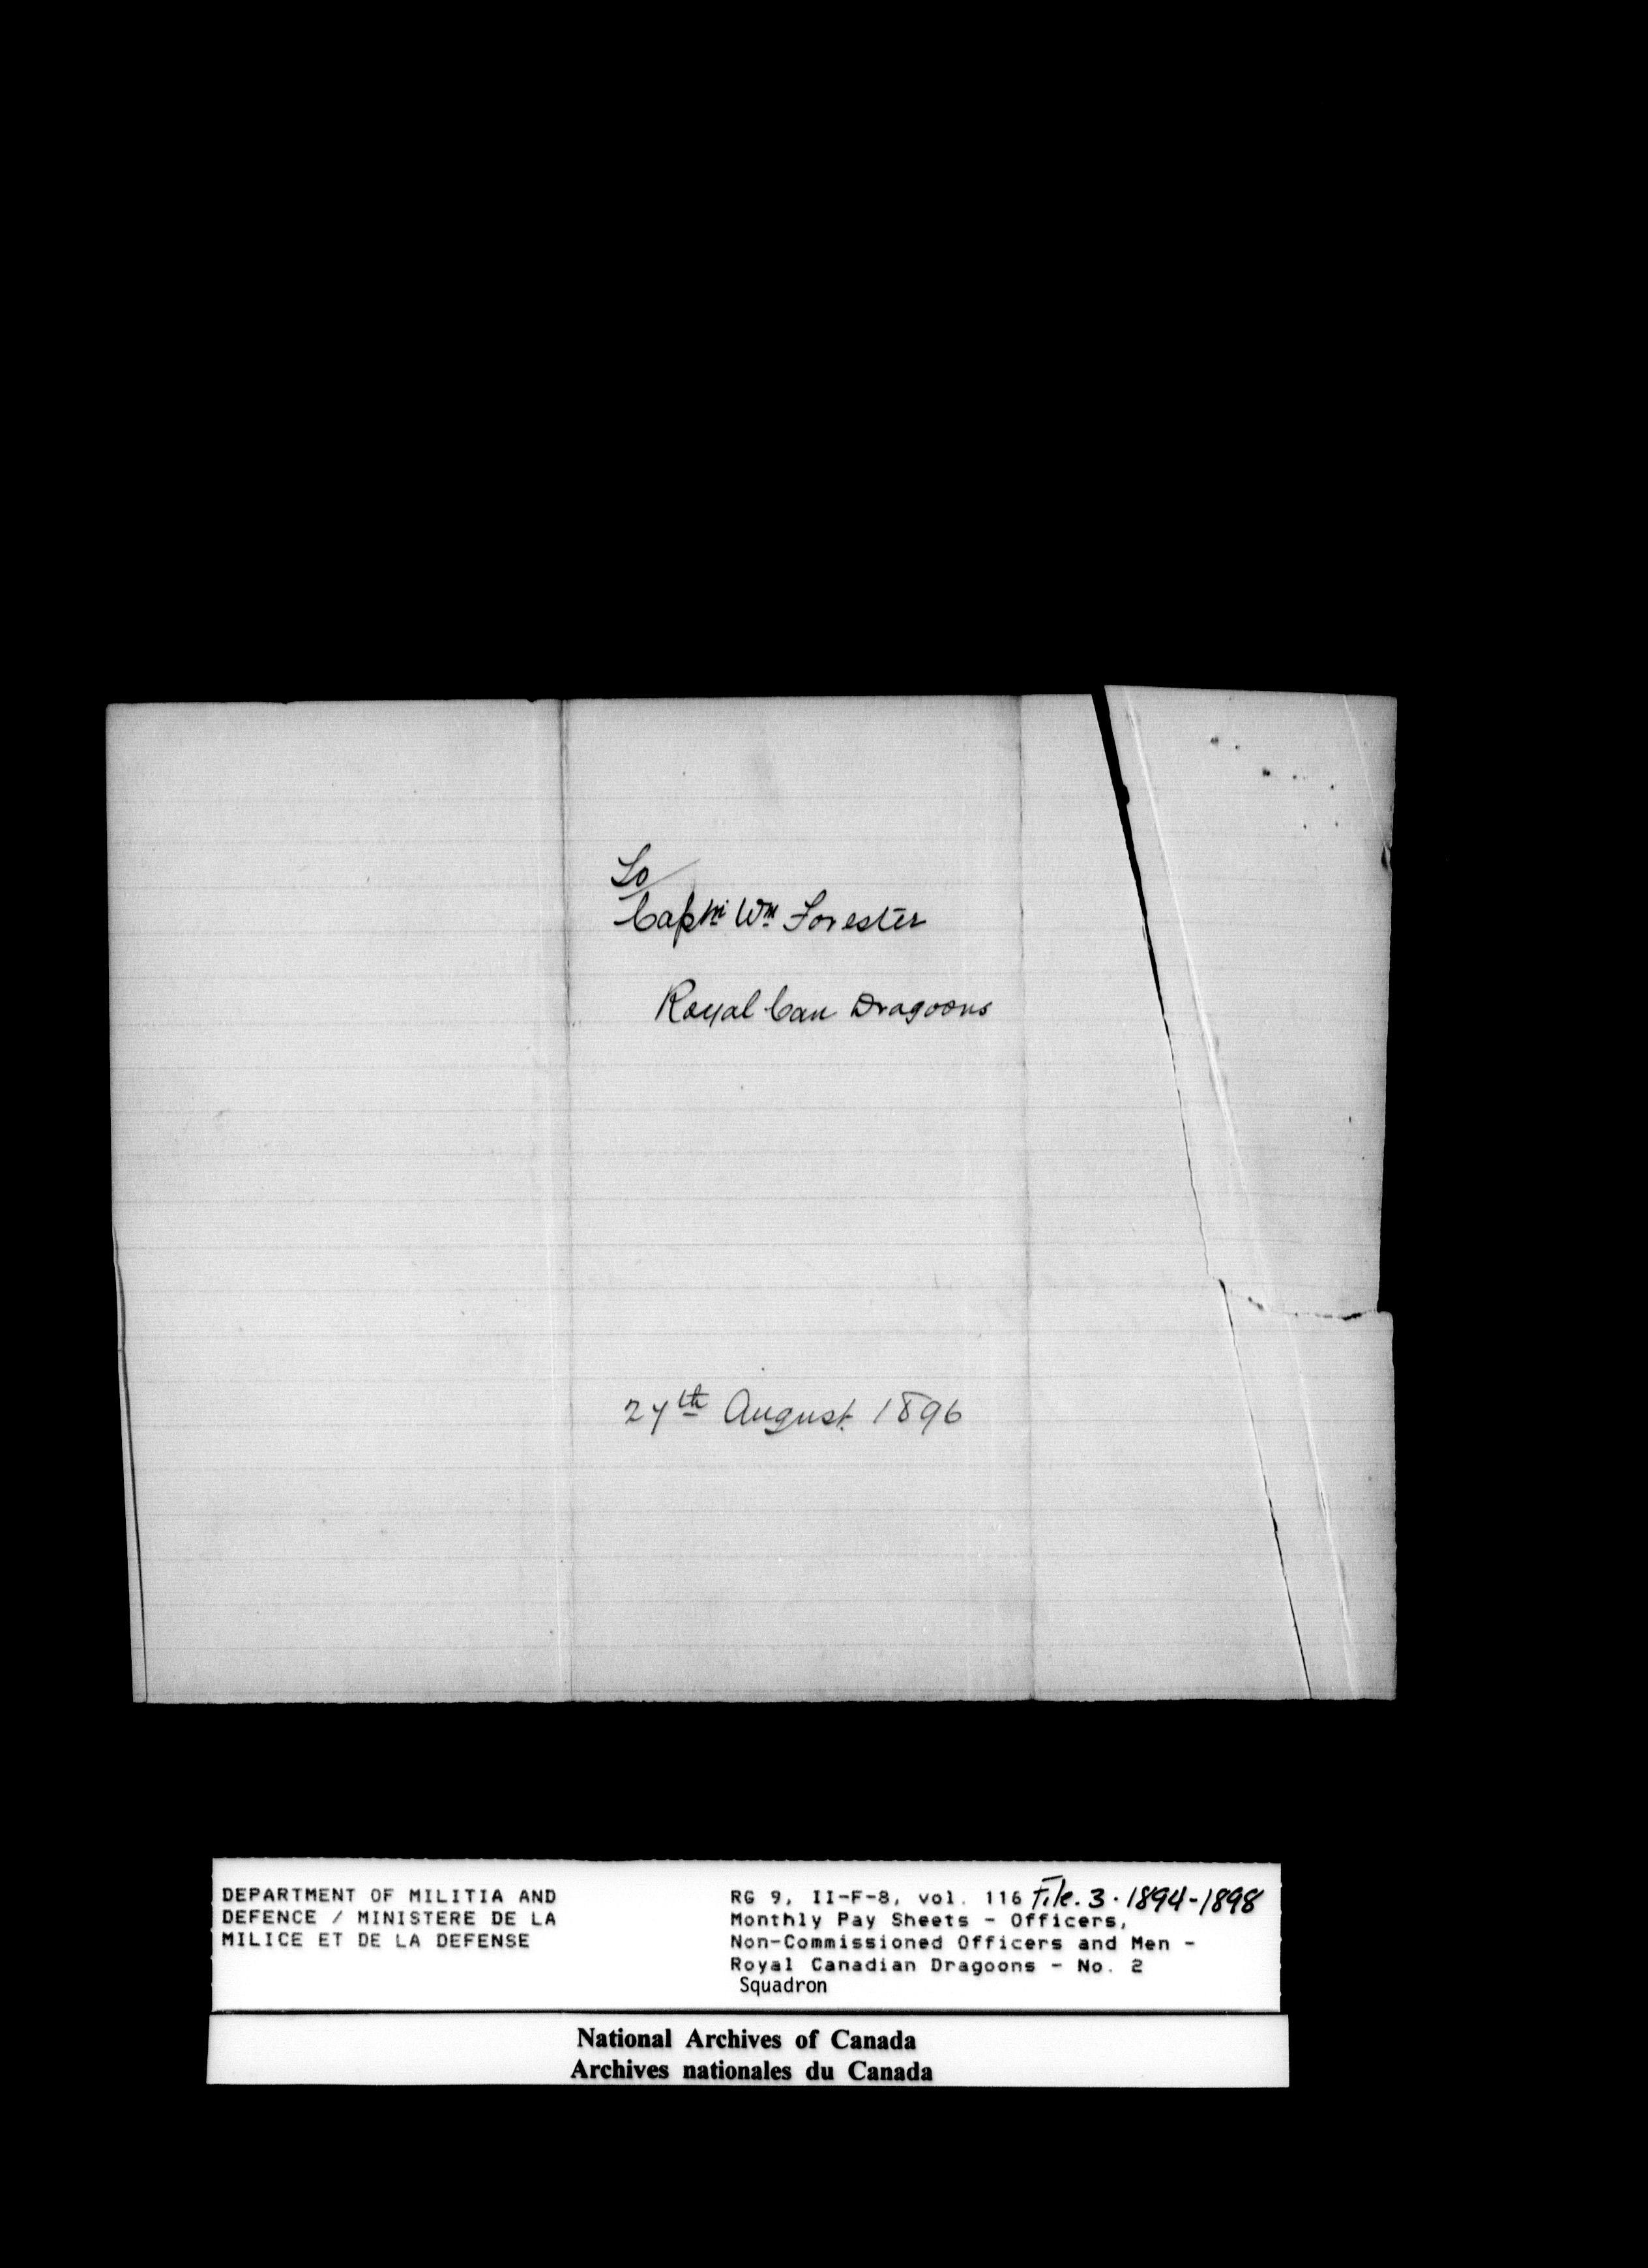 To
Captn Wm Forester
Royal Can Dragoons
27th August 1896
DEPARTMENT OF MILITIA AND
DEFENCE / MINISTERE DE LA
MILICE ET DE LA DEFENSE
RG 9, II-F-8, vol. 116 File. 3. 1894-1898
Monthly Pay Sheets - Officers,
Non-Commissioned Officers and Men -
Royal Canadian Dragoons - No. 2
Squadron
National Archives of Canada
Archives nationales du Canada